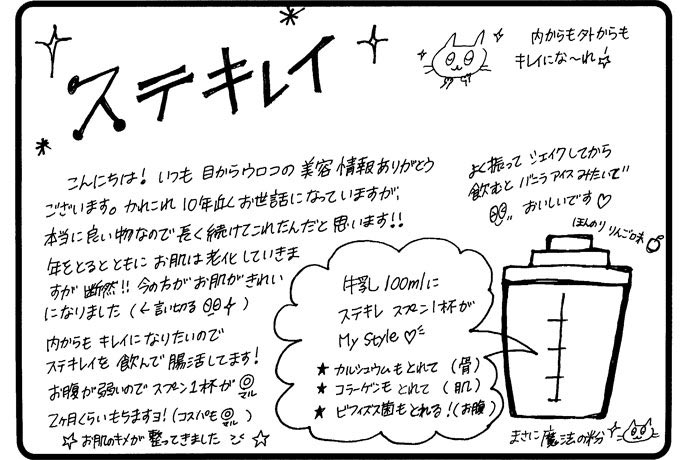 ステキレイ
内からも外からも
キレイにな〜れ☆
こんにちは！いつも目からウロコの美容情報ありがとう
ございます。かれこれ10年近くお世話になっていますが、
本当に良い物なので長く続けてこれたんだと思います!!
年をとるとともにお肌は老化していきま
すが断然!!今の方がお肌がきれい
になりました（←言い切る）
内からもキレイになりたいので
ステキレイを飲んで腸活してます！
お腹が弱いのでスプーン1杯が◎
マル
2ヶ月くらいもちますヨ！（コスパも◎）
マル
☆お肌のキメが整ってきました☆
よく振ってシェイクしてから
飲むとバニラアイスみたいで
おいしいです♡
ほんのりりんご味
牛乳100mlに
ステキレスプーン1杯が
My Style♡
★カルシュウムもとれて（骨）
★コラーゲンもとれて（肌）
★ビフィズス菌もとれる！（お腹）
まさに魔法の粉